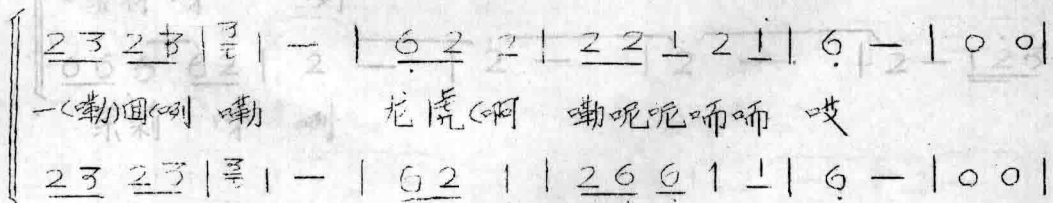 2 3 2 3 | 3/÷ 1 — | 6̣ 2 2 | 2 2 1 2 1 | 6̣ — | 0 0 |
一(嘞)回(咧 嘞 龙虎(啊 嘞呢呢唡唡 哎
2 3 2 3 | 3/÷ 1 — | 6̣ 2 1 | 2 6̣ 6̣ 1 1 | 6̣ — | 0 0 |